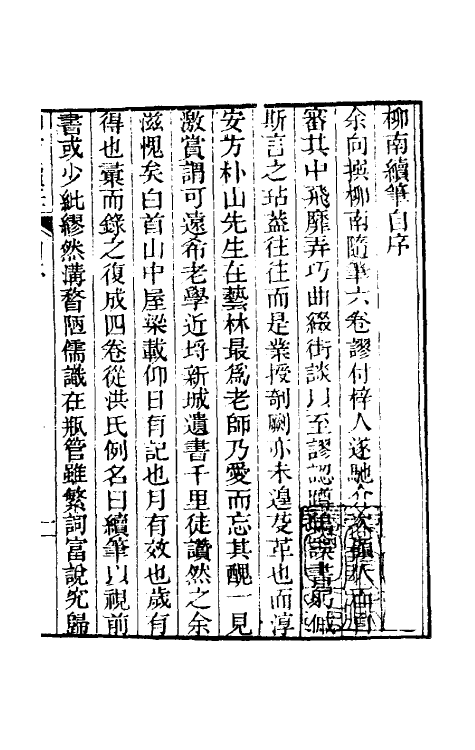 柳南續筆自序
余向撰柳南隨筆六卷謬付梓人遂馳
審其中飛靡弄巧曲綴街談以至謬認
斯言之玷蓋往往而是業授剞劂亦未遑芟革也而淳
安方朴山先生在藝林最爲老師乃愛而忘其醜一見
激賞謂可遠希老學近埒新城遺書千里徒讚然之余
滋愧矣白首山中屋梁載仰日有記也月有效也歲有
得也彙而錄之復成四卷從洪氏例名曰續筆以視前
書或少紕繆然溝瞀陋儒識在瓶管雖繁詞富說究歸